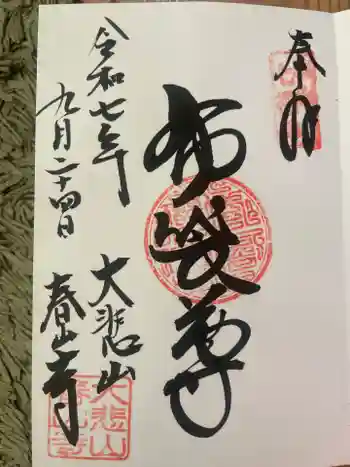 奉拝
布袋尊
令和七年
九月二十四日
大悲山
春山寺
大悲山
春山寺